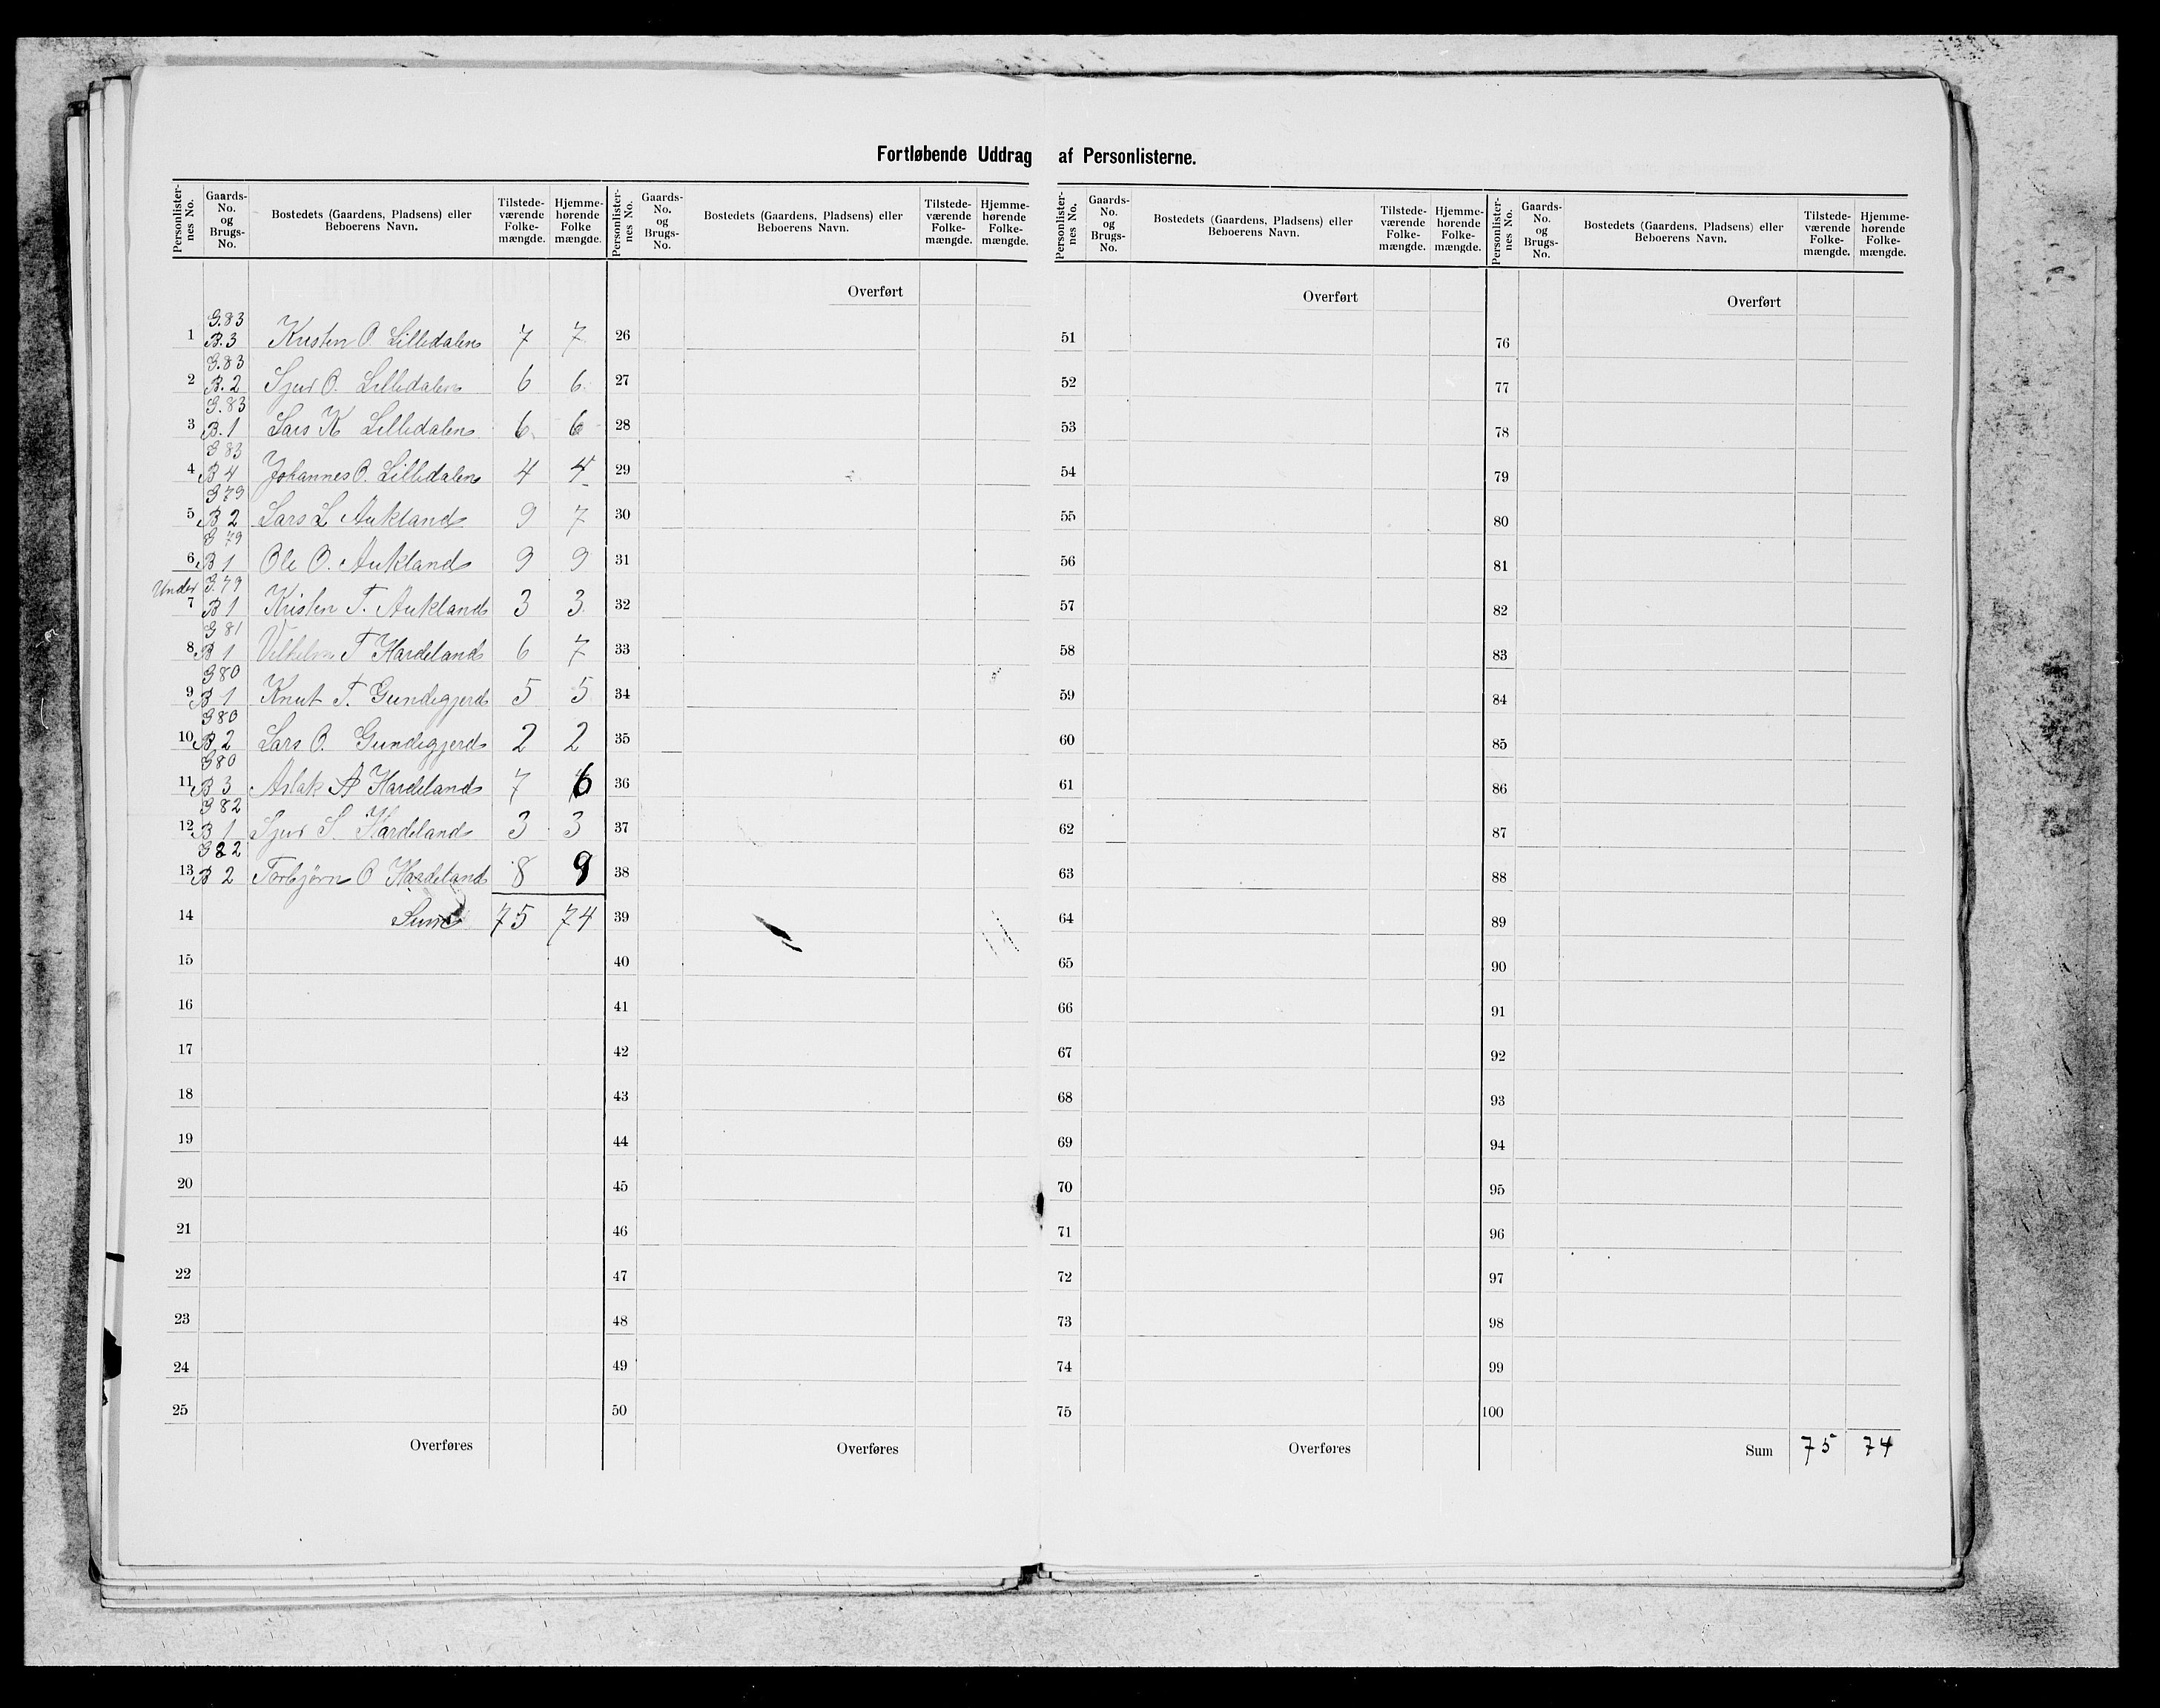 Fortløbende Uddrag af Personlisterne.
Personlisternes No. | Gaards-No. og Brugs-No. | Bostedets (Gaardens, Pladsens) eller Beboerens Navn. | Tilstedeværende Folkemængde. | Hjemmehørende Folkemængde.
1 | G.83 B.3 | Kristen O. Lilledalen | 7 | 7
2 | G.83 B.2 | Sjur O. Lilledalen | 6 | 6
3 | G.83 B.1 | Lars K Lilledalen | 6 | 6
4 | G 83 B 4 | Johannes O. Lilledalen | 4 | 4
5 | G 79 B 2 | Lars L Aukland | 9 | 7
6 | G 79 B 1 | Ole O. Aukland | 9 | 9
Under 7 | G.79 B 1 | Kristen T. Aukland | 3 | 3
8 | G 81 B 1 | Vilhelm T Hardeland | 6 | 7
9 | G 80 B 1 | Knut T. Gundegjerd | 5 | 5
10 | G 80 B 2 | Lars O. Gundegjerd | 2 | 2
11 | G 80 B 3 | Aslak A Hardeland | 7 | 6
12 | G 82 B 1 | Sjur S. Hardeland | 3 | 3
13 | G 82 B 2 | Torbjørn O Hardeland | 8 | 9
14 | Sum | 75 | 74
15
16
17
18
19
20
21
22
23
24
25
Overføres
Personlisternes No. | Gaards-No. og Brugs-No. | Bostedets (Gaardens, Pladsens) eller Beboerens Navn. | Tilstedeværende Folkemængde. | Hjemmehørende Folkemængde.
Overført
26
27
28
29
30
31
32
33
34
35
36
37
38
39
40
41
42
43
44
45
46
47
48
49
50
Overføres
Personlisternes No. | Gaards-No. og Brugs-No. | Bostedets (Gaardens, Pladsens) eller Beboerens Navn. | Tilstedeværende Folkemængde. | Hjemmehørende Folkemængde.
Overført
51
52
53
54
55
56
57
58
59
60
61
62
63
64
65
66
67
68
69
70
71
72
73
74
75
Overføres
Personlisternes No. | Gaards-No. og Brugs-No. | Bostedets (Gaardens, Pladsens) eller Beboerens Navn. | Tilstedeværende Folkemængde. | Hjemmehørende Folkemængde.
Overført
76
77
78
79
80
81
82
83
84
85
86
87
88
89
90
91
92
93
94
95
96
97
98
99
100
Sum | 75 | 74